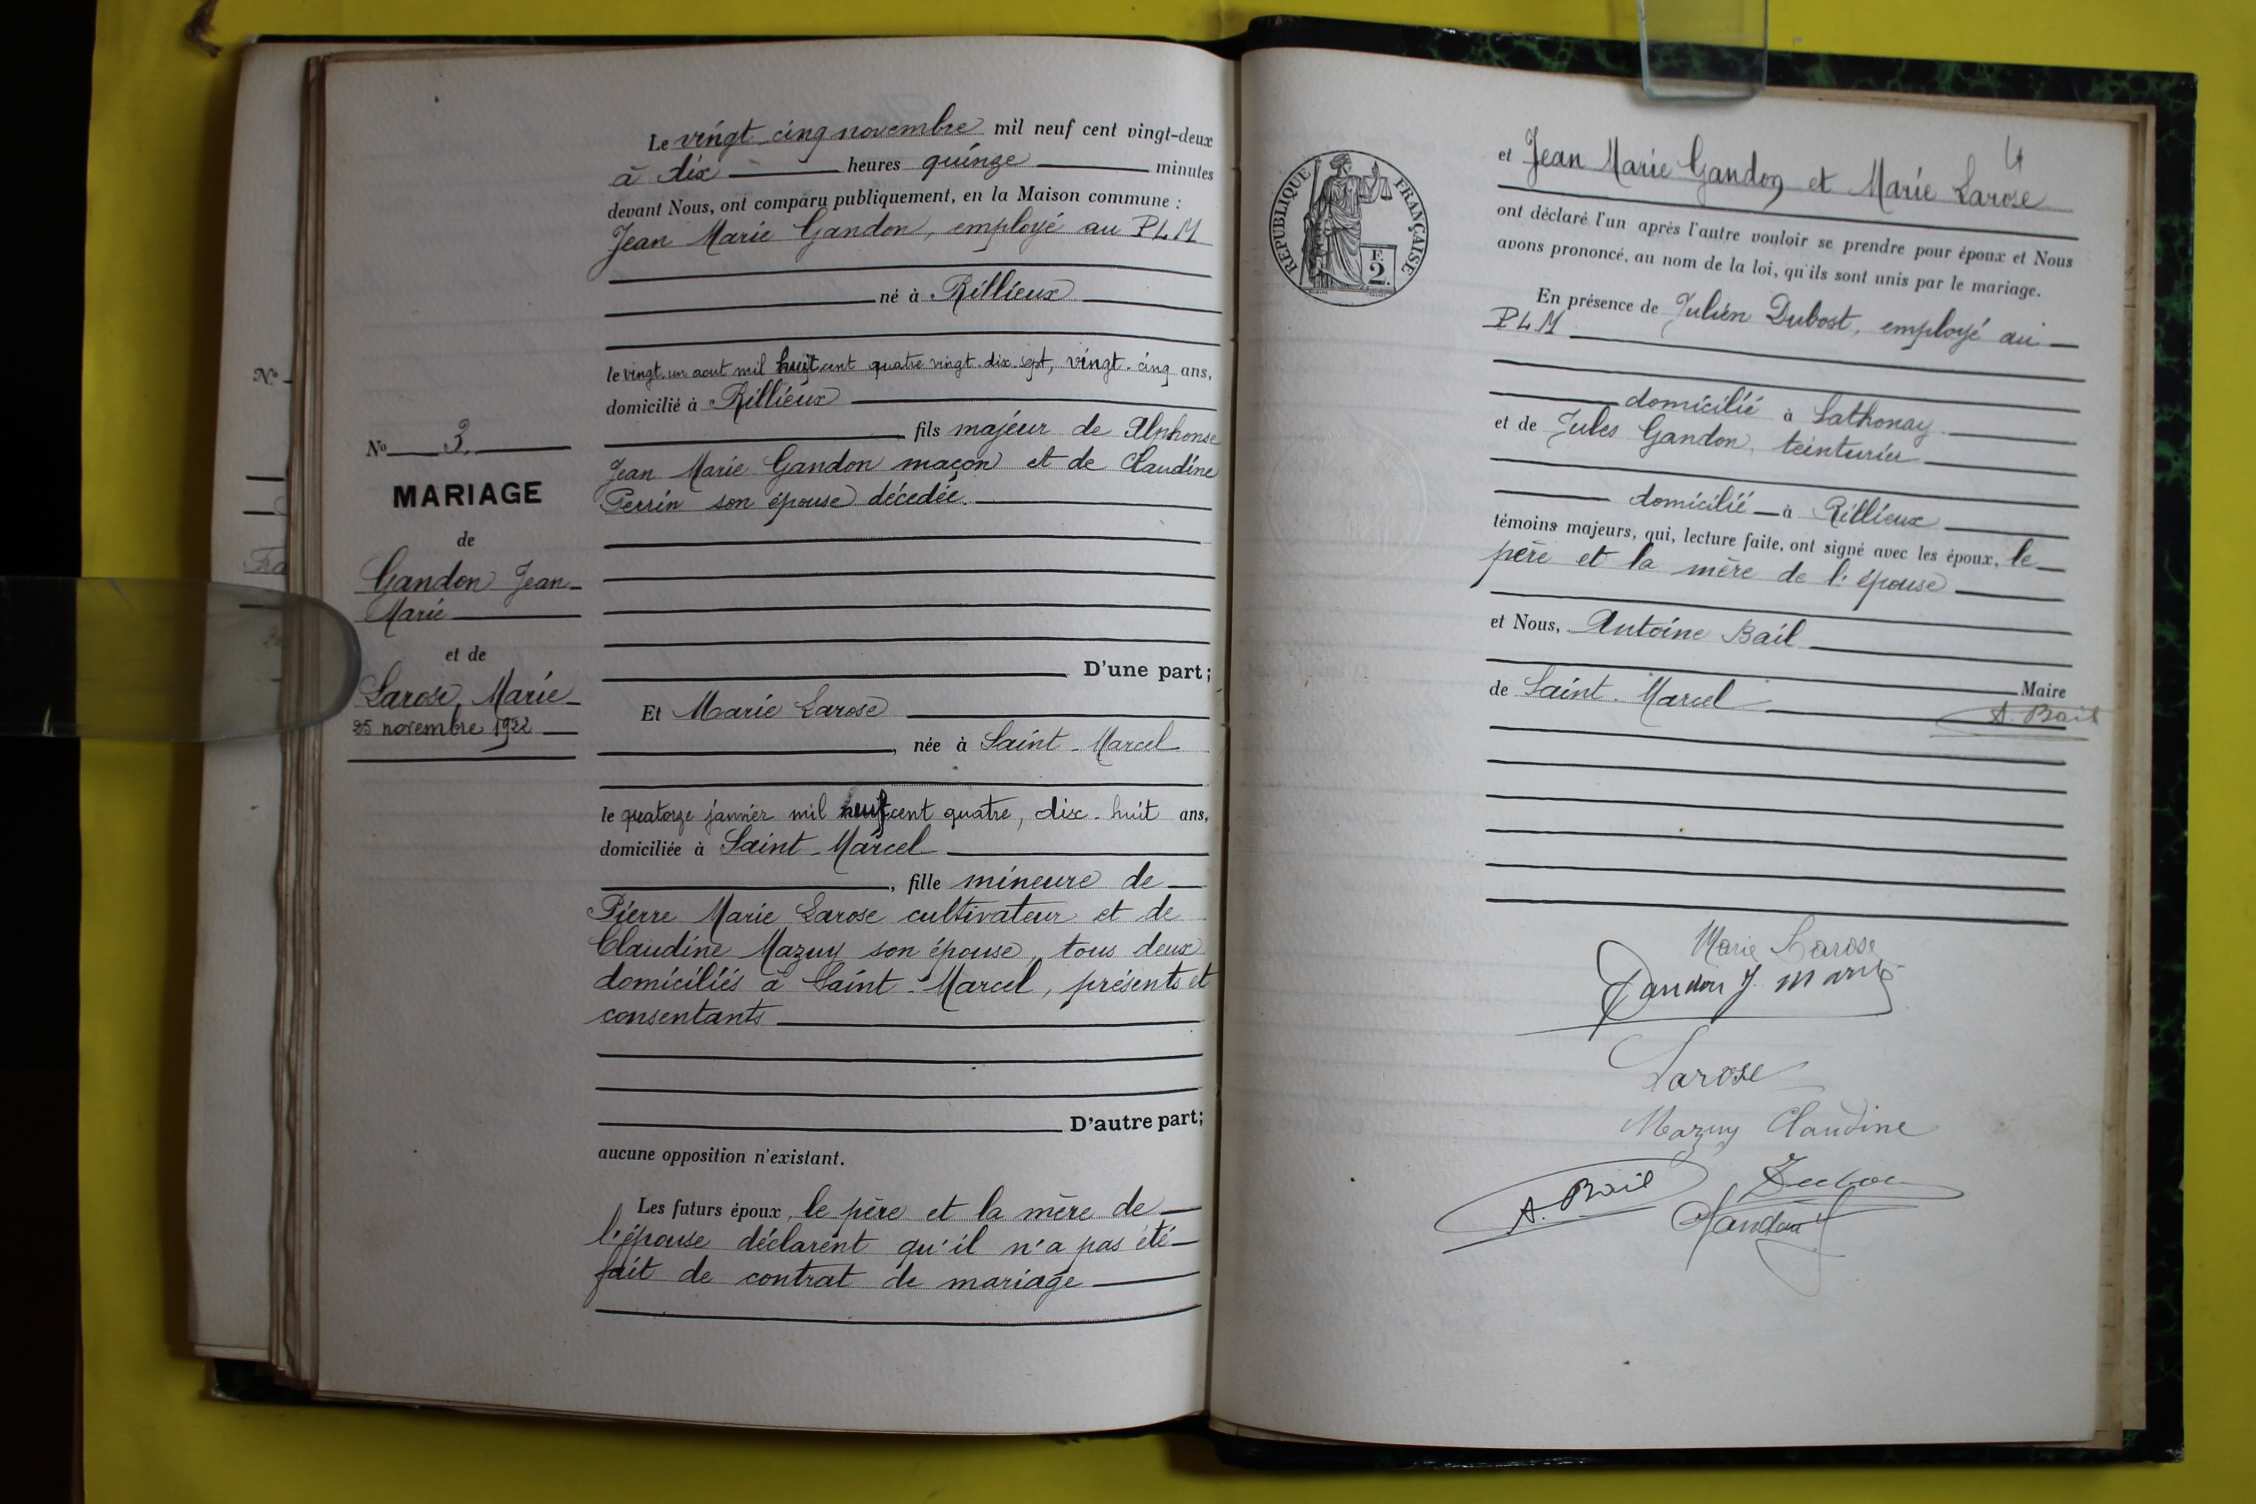 Nº
Fra
Nº 3.
MARIAGE
de
Gandon Jean
Marie
et de
Larose, Marie
25 novembre 1922
Le vingt-cinq novembre mil neuf cent vingt-deux
à dix heures quinze minutes
devant Nous, ont comparu publiquement, en la Maison commune :
Jean Marie Gandon, employé au P L M
né à Rillieux
le vingt-un aout mil huit cent quatre vingt-dix-sept, vingt-cinq ans,
domicilié à Rillieux
fils majeur de Alphonse
Jean Marie Gandon maçon et de Claudine
Perrin son épouse décedée.
D'une part ;
Et Marie Larose
, née à Saint-Marcel
le quatorze janvier mil neuf cent quatre, dix-huit ans,
domiciliée à Saint-Marcel
, fille mineure de
Pierre Marie Larose cultivateur et de
Claudine Mazuy son épouse, tous deux
domiciliés à Saint-Marcel, présents et
consentants
D'autre part ;
aucune opposition n'existant.
Les futurs époux, le père et la mère de
l'épouse déclarent qu'il n'a pas été
fait de contrat de mariage
4
RÉPUBLIQUE FRANÇAISE
F.
2.
et Jean Marie Gandon et Marie Larose
ont déclaré l'un après l'autre vouloir se prendre pour époux et Nous
avons prononcé, au nom de la loi, qu'ils sont unis par le mariage.
En présence de Julien Dubost, employé au
P L M
domicilié à Sathonay
et de Jules Gandon, teinturier
domicilié à Rillieux
témoins majeurs, qui, lecture faite, ont signé avec les époux, le
père et la mère de l'épouse
et Nous, Antoine Bail
Maire
de Saint-Marcel
A. Bail
Marie Larose
Gandon J. Marie
Larose
Mazuy Claudine
A. Bail
Gandon J